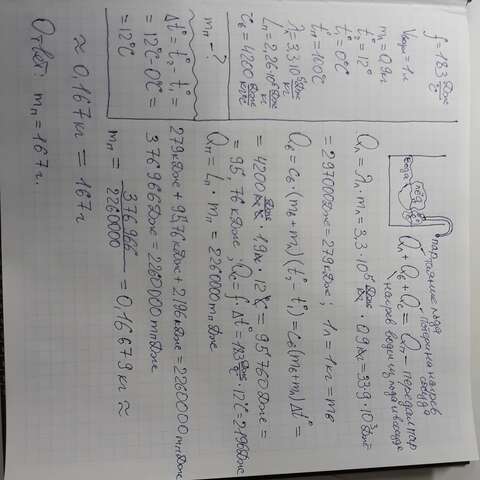 f = 183 Дж/°C
Vводы = 1л
mл = 0,9кг
t₂° = 12°
t₁° = 0°C
t°п = 100°C
λ = 3,3·10⁵ Дж/кг
Lп = 2,26·10⁶ Дж/кг
Cв = 4200 Дж/кг°C
mп - ?
Δt° = t₂° - t₁° =
= 12°C - 0°C =
= 12°C
вода
лёд
пар
таяние льда
Потрачена нагрев сосуда
Qл + Qв + Qс = Qп - передал пар
нагрев воды из льда и в сосуде
Qл = λл · mл = 3,3 · 10⁵ Дж/кг · 0,9 кг =
= 297000Дж = 279кДж; 1л = 1кг = mв
Qв = cв · (mв + mл)(t₂° - t₁°) = cв(mв + mл)Δt° =
= 4200 Дж/кг°C · 1,9кг · 12°C = 95760Дж =
= 95,76 кДж; Qс = f · Δt° = 183 Дж/°C · 12°C = 2196Дж
Qп = Lп · mп = 2260000mп Дж
279кДж + 95,76кДж + 2,196кДж = 2260000mп Дж
376966Дж = 2260000mп Дж
mп = 376966/2260000 = 0,16679кг ≈
≈ 0,167кг = 167г
Ответ: mп = 167г.